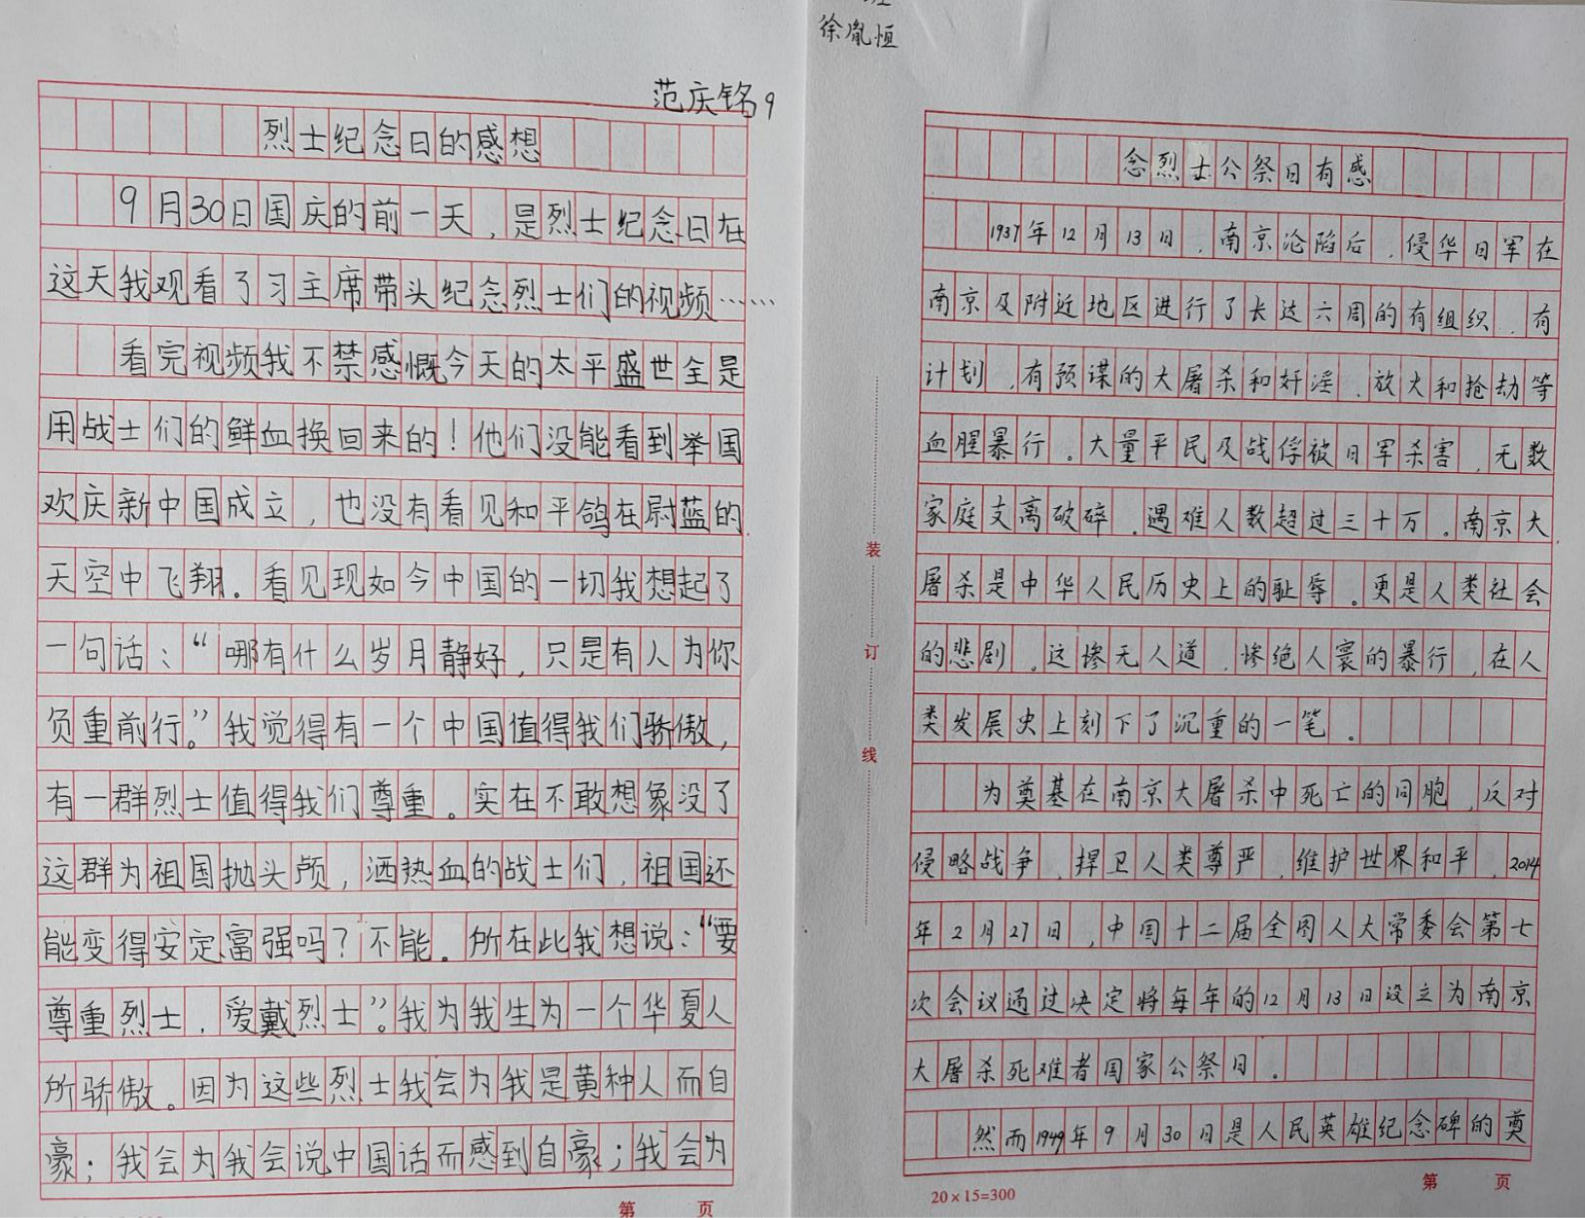 范庆铭9
烈士纪念日的感想
9月30日国庆的前一天，是烈士纪念日在
这天我观看了习主席带头纪念烈士们的视频……
看完视频我不禁感慨今天的太平盛世全是
用战士们的鲜血换回来的！他们没能看到举国
欢庆新中国成立，也没有看见和平鸽在尉蓝的
天空中飞翔。看见现如今中国的一切我想起了
一句话：“哪有什么岁月静好，只是有人为你
负重前行。”我觉得有一个中国值得我们骄傲，
有一群烈士值得我们尊重。实在不敢想象没了
这群为祖国抛头颅，洒热血的战士们，祖国还
能变得安定富强吗？不能。所在此我想说：“要
尊重烈士，爱戴烈士”。我为我生为一个华夏人
所骄傲。因为这些烈士我会为我是黄种人而自
豪；我会为我会说中国话而感到自豪；我会为
第 页
徐胤恒
念烈士公祭日有感
1937年12月13日，南京沦陷后，侵华日军在
南京及附近地区进行了长达六周的有组织，有
计划，有预谋的大屠杀和奸淫，放火和抢劫等
血腥暴行。大量平民及战俘被日军杀害，无数
家庭支离破碎，遇难人数超过三十万。南京大
屠杀是中华人民历史上的耻辱。更是人类社会
的悲剧，这惨无人道，惨绝人寰的暴行，在人
类发展史上刻下了沉重的一笔。
为奠基在南京大屠杀中死亡的同胞，反对
侵略战争，捍卫人类尊严，维护世界和平，2014
年2月27日，中国十二届全国人大常委会第七
次会议通过决定将每年的12月13日设立为南京
大屠杀死难者国家公祭日。
然而1949年9月30日是人民英雄纪念碑的奠
20×15=300
第 页
装
订
线